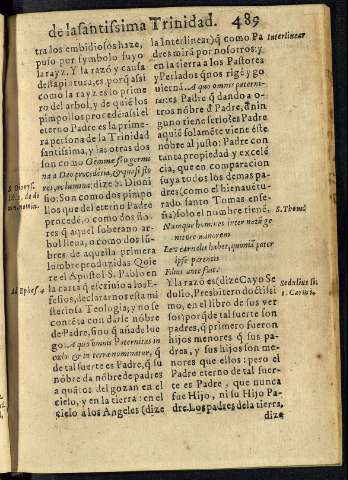 de la santissima Trinidad. 489
tra los embidiosos haze,
puso por symbolo suyo
la rayz. Y la razō y causa
desta pintura, es, porq̄ assi
como la rayz es lo prime
ro del arbol, y de quiē los
pimpollos procedē: assi el
eterno Padre es la prime-
ra persona de la Trinidad
santissima, y las otras dos
son como
a Deo
dize S. Dioni
sio: Son como dos pimpo
llos que del eterno Padre
procedē, o como dos flo-
res q̄ aquel soberano ar-
bol lleua, o como dos lū-
bres de aquella primera
lumbre produzidas. Quie
re el Apostol S. Pablo en
la carta q̄ escriuio a los E-
fesios, declararnos esta mi
steriosa Teologia, y no se
contēta con darle nōbre
de Padre, sino q̄ añade lue
go. A quo omnis Paternitas in
cœlo & in terra nominatur, q̄
de tal suerte es Padre, q̄ su
nōbre da nōbre de padres
a quātos del gozan en el
cielo, y en la tierra: en el
cielo a los Angeles (dize
S. Dionys.
Ad Ephes.
la Interlinear) q̄ como Pa
dres mirā por nosotros: y
en la tierra a los Pastores
y Perlados q̄ nos rigē y go
uiernā. A quo omnis paterni-
tas: es Padre q̄ dando a o-
tros nōbre de Padre, a nin
guno tiene serio les Padre
aqui solamēte viene este
nōbre al justo: Padre con
tanta propiedad y excelē
cia, que en comparacion
suya todos los demas pa-
dres (como el bienauētu-
rado santo Tomas ense-
ña) solo el nombre tienē.
Y la razō es (dize Cayo Se
dulio, Presbitero doctissi
mo, en el libro de sus ver
sos) porq̄ de tal suerte son
padres, q̄ primero fueron
hijos menores q̄ sus pa-
dres, y sus hijos son me-
nores que ellos: pero el
Padre eterno de tal suer-
te es Padre, que nunca
fue Hijo, ni su Hijo Pa-
dre. Los padres de la tierra,
dize
Interlinear
S. Thomā
Sedulius li.
1. Carmi.